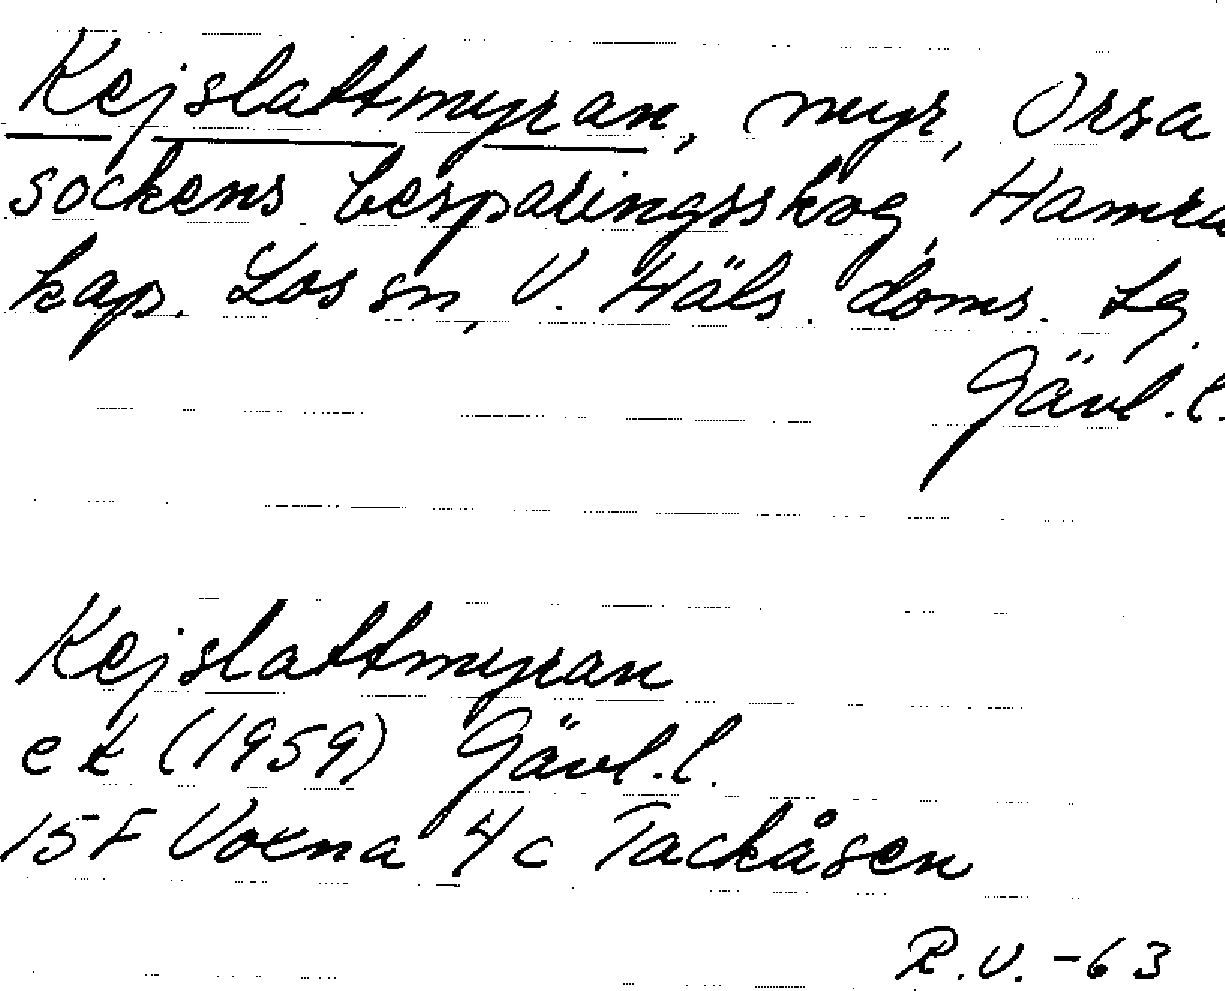 Kejslattmyran, myr, Orsa
sockens besparingsskog, Hamra
kap. Los sn, V. Häls. doms. Lg.
Gävl. l.
Kejslattmyran
ek (1959) Gävl. l.
15F Voxna 4c Tackåsen
R.V. -63